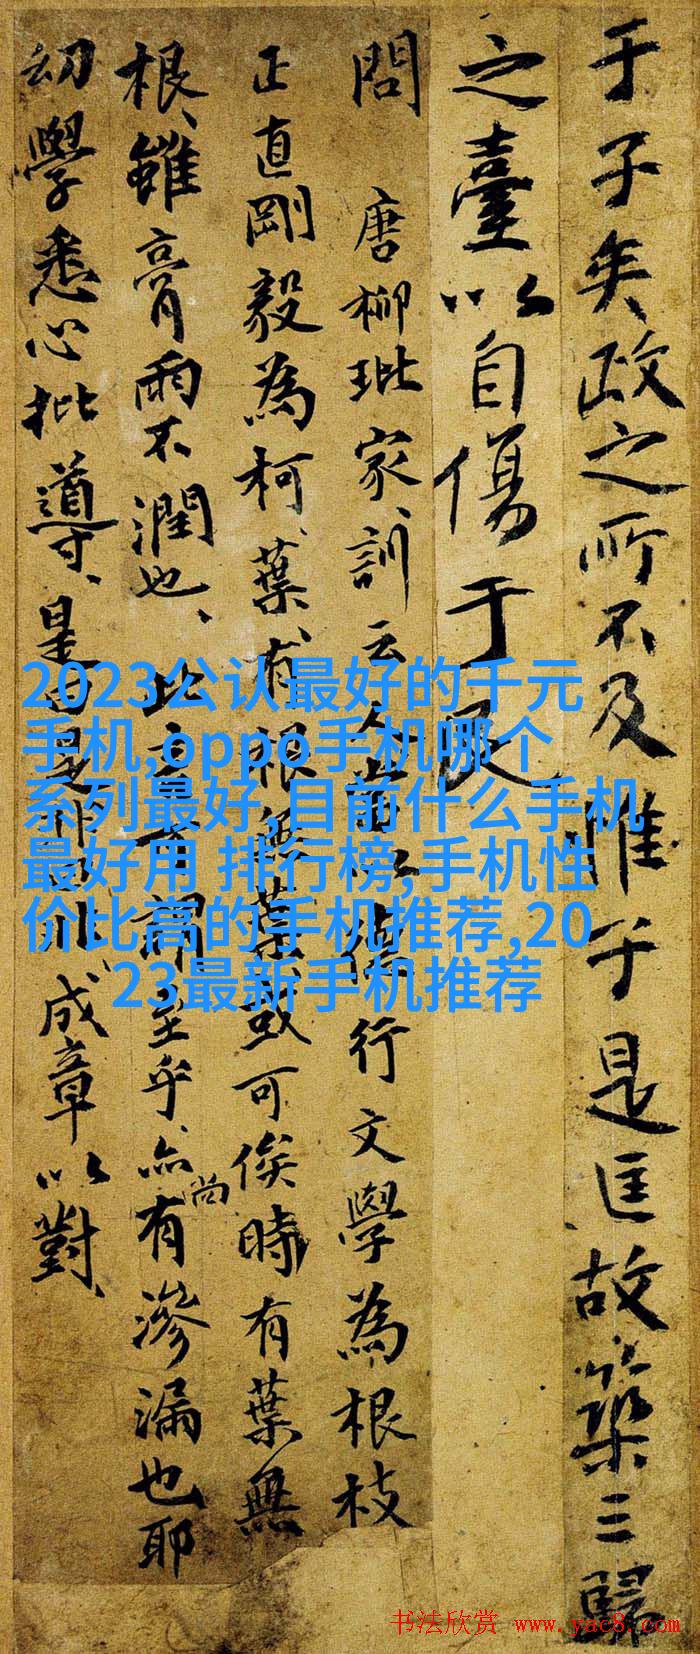 于子矣政之所不及惟于是匡故築三歸
之臺以自傷于民
問 唐柳玭家訓云當以德行文學為根枝
正直剛毅為柯葉有根無葉或可俟時有葉無
根雖膏雨不潤也此言謂至乎亦尚有滲漏也耶
幼學悉心批導是曰是非曰成章以對
2023公认最好的千元
手机,oppo手机哪个
系列最好,目前什么手机
最好用 排行榜,手机性
价比高的手机推荐,20
23最新手机推荐
书法欣赏 www.yac8.com